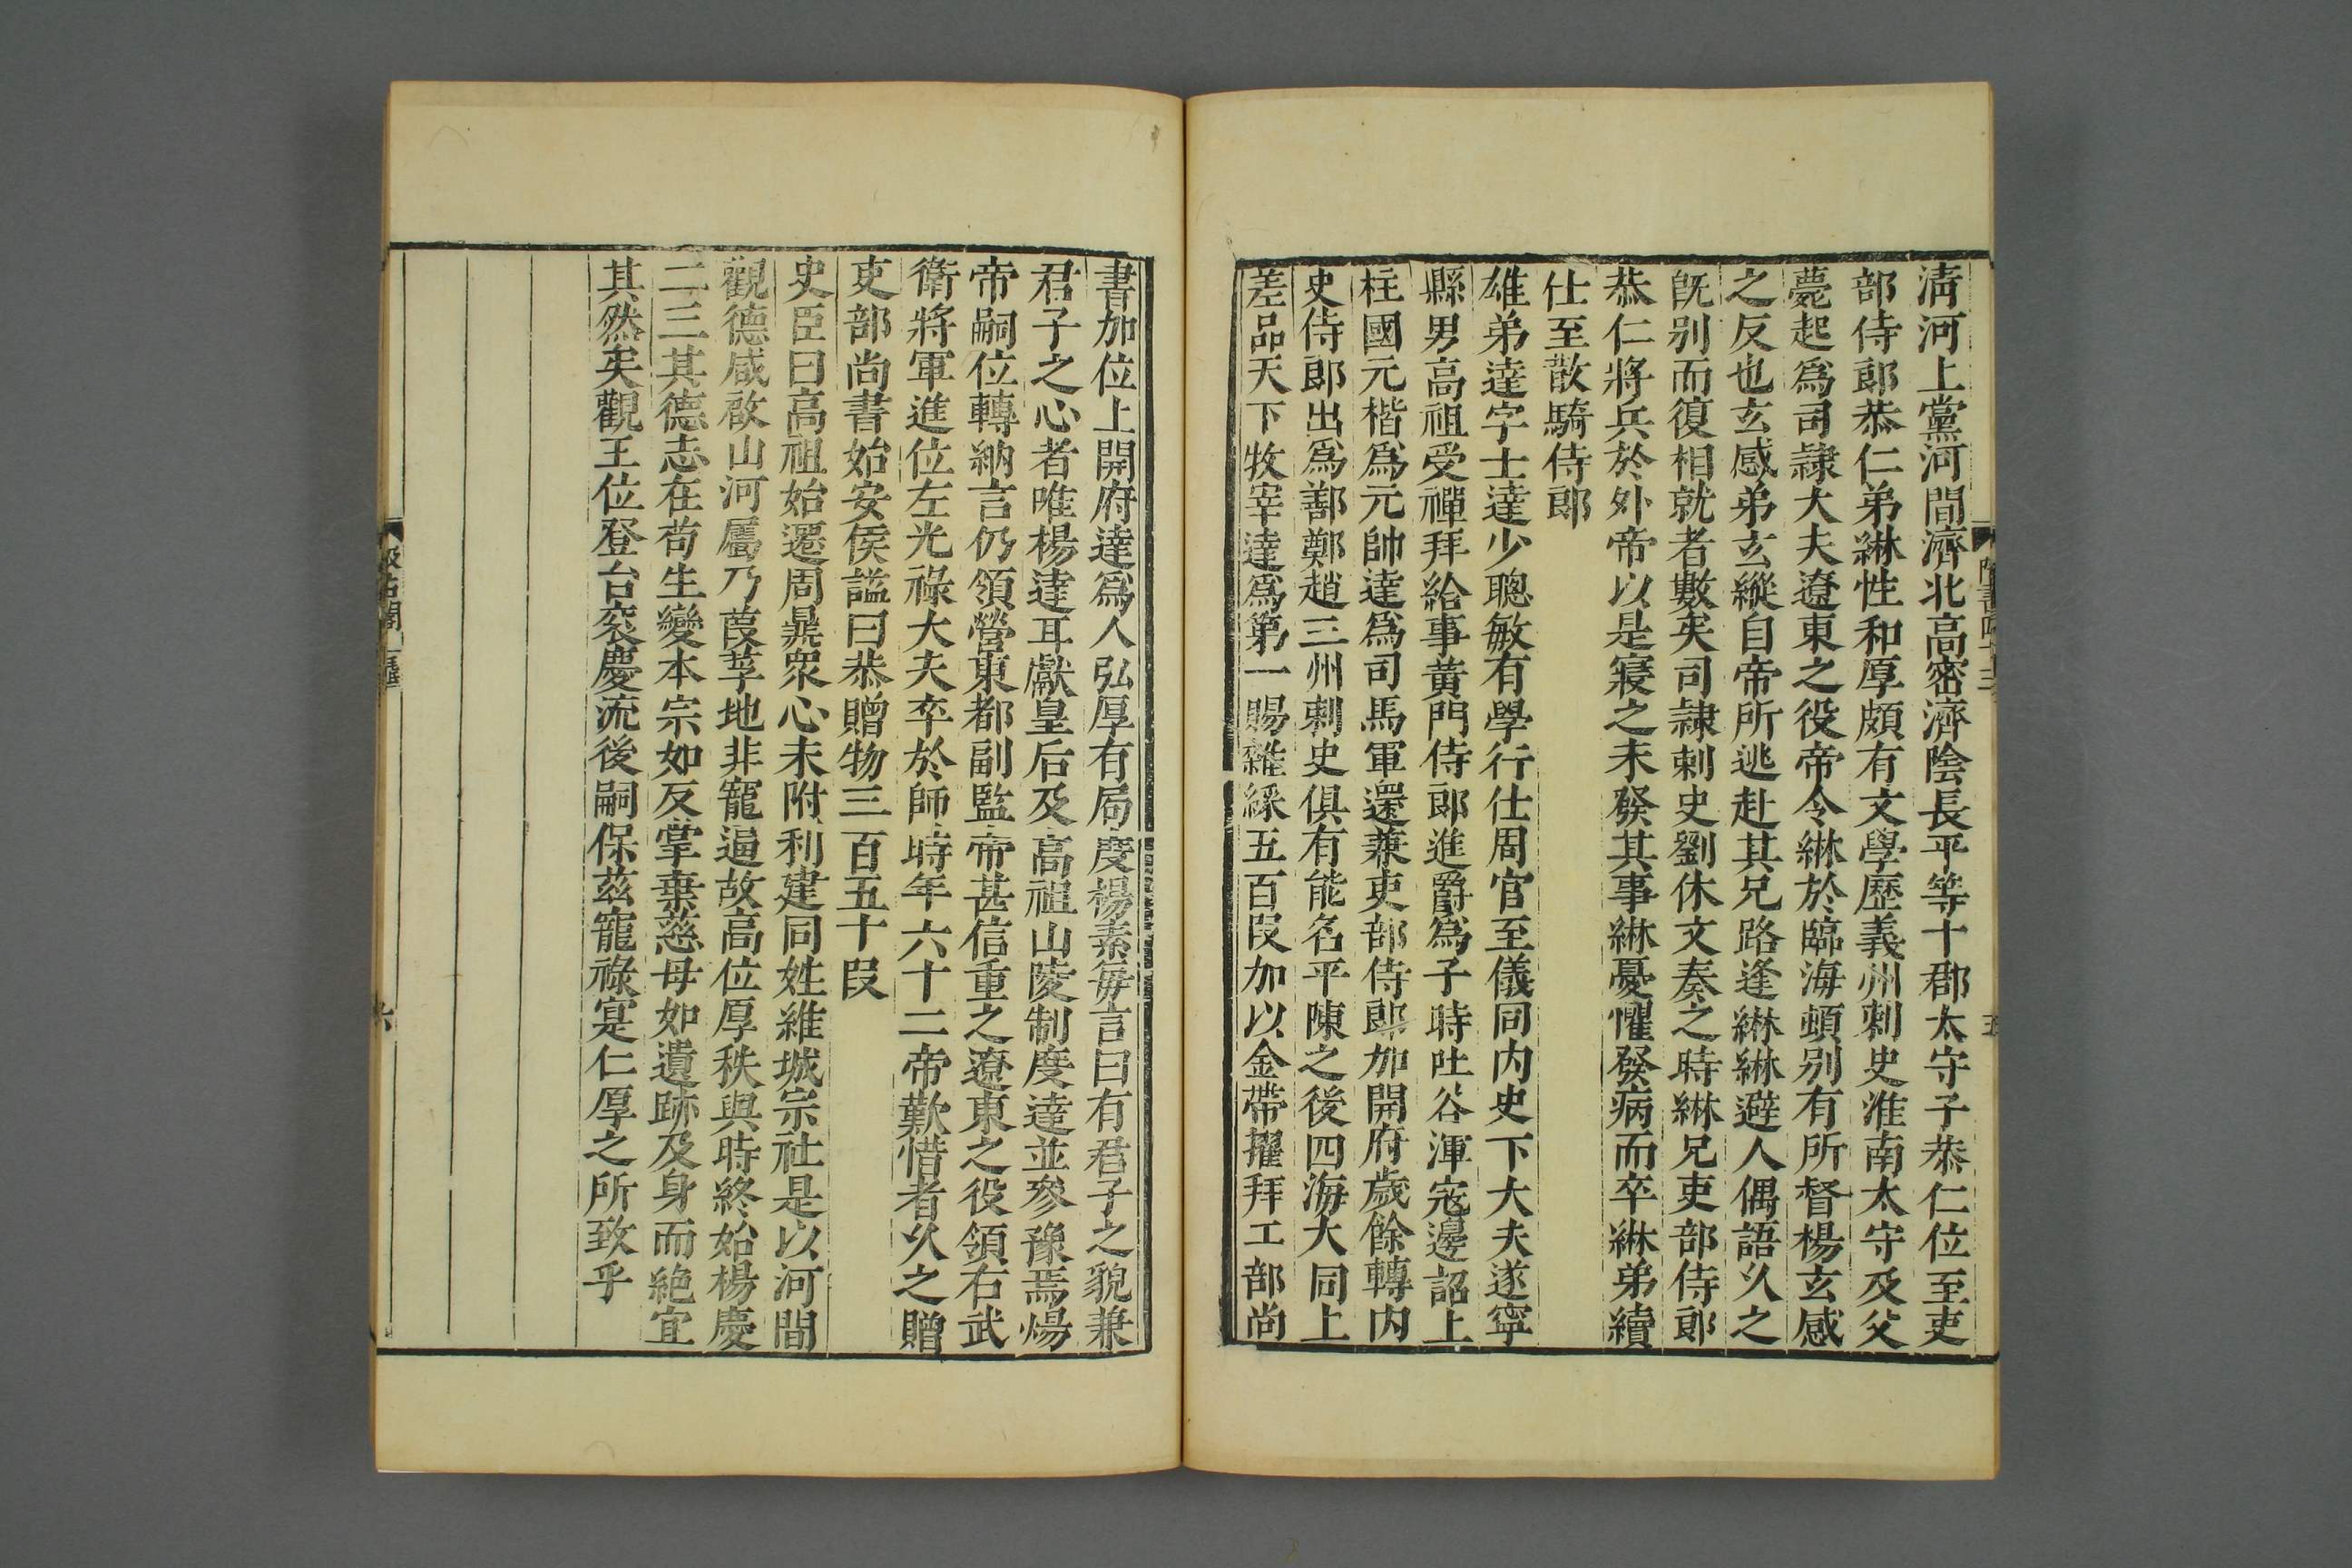 清河上黨河間濟北高密濟陰長平等十郡太守子恭仁位至吏
部侍郎恭仁弟綝性和厚頗有文學歷義州刺史淮南太守及父
薨起爲司隷大夫遼東之役帝令綝於臨海頓别有所督楊玄感
之反也玄感弟玄縱自帝所逃赴其兄路逢綝綝避人偶語乆之
旣别而復相就者數矣司隷刺史劉休文奏之時綝兄吏部侍郎
恭仁將兵於外帝以是寢之未發其事綝憂懼發病而卒綝弟續
仕至散騎侍郎
雄弟達字士達少聰敏有學行仕周官至儀同内史下大夫遂寧
縣男高祖受禪拜給事黄門侍郎進爵爲子時吐谷渾寇邊詔上
柱國元楷爲元帥達爲司馬軍還兼吏部侍郎加開府歲餘轉内
史侍郎出爲鄯鄭趙三州刺史俱有能名平陳之後四海大同上
差品天下牧宰達爲第一賜雜綵五百叚加以金帶擢拜工部尚
隋書四十三
五
書加位上開府達爲人弘厚有局度楊素每言曰有君子之貌兼
君子之心者唯楊達耳獻皇后及高祖山陵制度達並參豫焉煬
帝嗣位轉納言仍領營東都副監帝甚信重之遼東之役領右武
衛將軍進位左光祿大夫卒於師時年六十二帝歎惜者乆之贈
吏部尚書始安侯謚曰恭贈物三百五十叚
史臣曰高祖始遷周鼎衆心未附利建同姓維城宗社是以河間
觀德咸啟山河屬乃葭莩地非寵逼故高位厚秩與時終始楊慶
二三其德志在苟生變本宗如反掌棄慈母如遺跡及身而絶宜
其然矣觀王位登台衮慶流後嗣保茲寵祿寔仁厚之所致乎
汲古閣
六